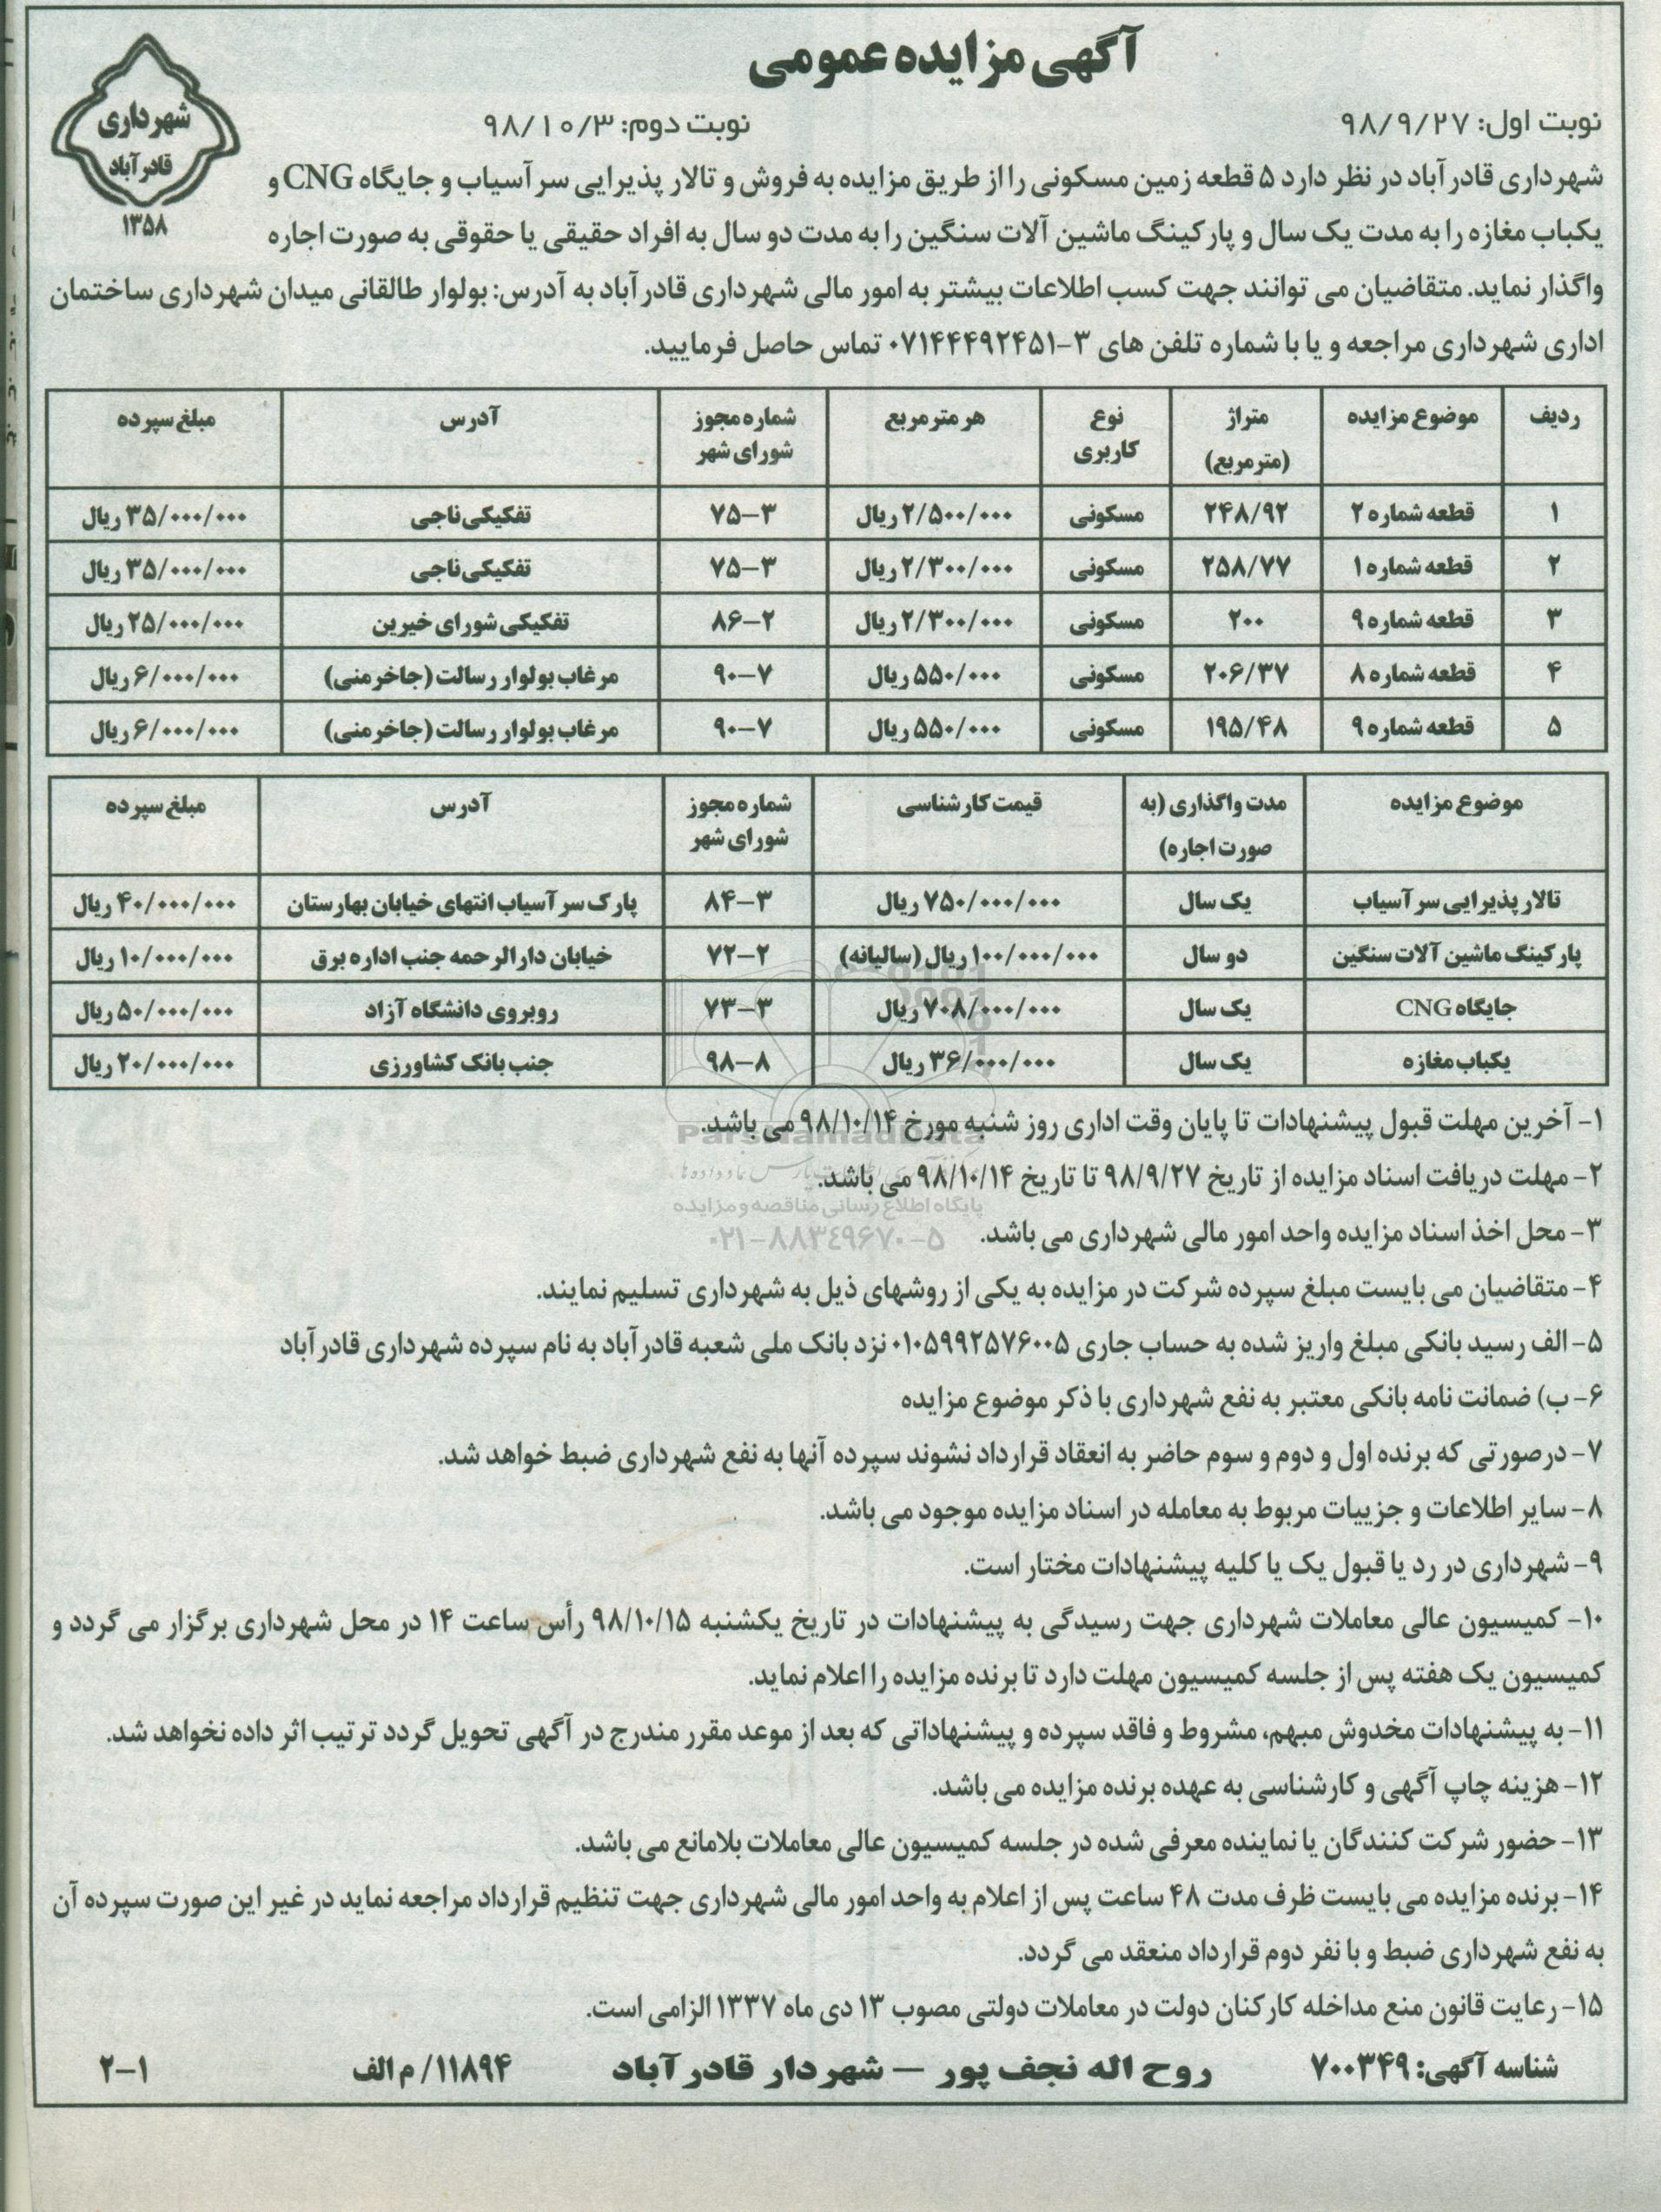 آگهی مزایده عمومی
شهرداری
قادرآباد
۱۳۵۸
نوبت اول: ۹۸/۹/۲۷
نوبت دوم: ۹۸/۱۰/۳
شهرداری قادرآباد در نظر دارد ۵ قطعه زمین مسکونی را از طریق مزایده به فروش و تالار پذیرایی سر آسیاب و جایگاه CNG و
یکباب مغازه را به مدت یک سال و پارکینگ ماشین آلات سنگین را به مدت دو سال به افراد حقیقی یا حقوقی به صورت اجاره
واگذار نماید. متقاضیان می توانند جهت کسب اطلاعات بیشتر به امور مالی شهرداری قادرآباد به آدرس: بولوار طالقانی میدان شهرداری ساختمان
اداری شهرداری مراجعه و یا با شماره تلفن های ۳-۰۷۱۴۴۴۹۲۴۵۱ تماس حاصل فرمایید.
ردیف | موضوع مزایده | متراژ (مترمربع) | نوع کاربری | هر مترمربع | شماره مجوز شورای شهر | آدرس | مبلغ سپرده
۱ | قطعه شماره ۲ | ۲۴۸/۹۲ | مسکونی | ۲/۵۰۰/۰۰۰ ریال | ۷۵-۳ | تفکیکی ناجی | ۳۵/۰۰۰/۰۰۰ ریال
۲ | قطعه شماره ۱ | ۲۵۸/۷۷ | مسکونی | ۲/۳۰۰/۰۰۰ ریال | ۷۵-۳ | تفکیکی ناجی | ۳۵/۰۰۰/۰۰۰ ریال
۳ | قطعه شماره ۹ | ۲۰۰ | مسکونی | ۲/۳۰۰/۰۰۰ ریال | ۸۶-۲ | تفکیکی شورای خیرین | ۲۵/۰۰۰/۰۰۰ ریال
۴ | قطعه شماره ۸ | ۲۰۶/۳۷ | مسکونی | ۵۵۰/۰۰۰ ریال | ۹۰-۷ | مرغاب بولوار رسالت (جاخرمنی) | ۶/۰۰۰/۰۰۰ ریال
۵ | قطعه شماره ۹ | ۱۹۵/۴۸ | مسکونی | ۵۵۰/۰۰۰ ریال | ۹۰-۷ | مرغاب بولوار رسالت (جاخرمنی) | ۶/۰۰۰/۰۰۰ ریال
موضوع مزایده | مدت واگذاری (به صورت اجاره) | قیمت کارشناسی | شماره مجوز شورای شهر | آدرس | مبلغ سپرده
تالار پذیرایی سر آسیاب | یک سال | ۷۵۰/۰۰۰/۰۰۰ ریال | ۸۴-۳ | پارک سر آسیاب انتهای خیابان بهارستان | ۴۰/۰۰۰/۰۰۰ ریال
پارکینگ ماشین آلات سنگین | دو سال | ۱۰۰/۰۰۰/۰۰۰ ریال (سالیانه) | ۷۲-۲ | خیابان دارالرحمه جنب اداره برق | ۱۰/۰۰۰/۰۰۰ ریال
جایگاه CNG | یک سال | ۷۰۸/۰۰۰/۰۰۰ ریال | ۷۳-۳ | روبروی دانشگاه آزاد | ۵۰/۰۰۰/۰۰۰ ریال
یکباب مغازه | یک سال | ۳۶/۰۰۰/۰۰۰ ریال | ۹۸-۸ | جنب بانک کشاورزی | ۲۰/۰۰۰/۰۰۰ ریال
۱- آخرین مهلت قبول پیشنهادات تا پایان وقت اداری روز شنبه مورخ ۹۸/۱۰/۱۴ می باشد.
ParsNamadData
۲- مهلت دریافت اسناد مزایده از تاریخ ۹۸/۹/۲۷ تا تاریخ ۹۸/۱۰/۱۴ می باشد.
پایگاه اطلاع رسانی مناقصه و مزایده
۳- محل اخذ اسناد مزایده واحد امور مالی شهرداری می باشد.
۰۲۱-۸۸۳۴۹۶۷۰-۵
۴- متقاضیان می بایست مبلغ سپرده شرکت در مزایده به یکی از روشهای ذیل به شهرداری تسلیم نمایند.
۵- الف رسید بانکی مبلغ واریز شده به حساب جاری ۰۱۰۵۹۹۲۵۷۶۰۰۵ نزد بانک ملی شعبه قادرآباد به نام سپرده شهرداری قادرآباد
۶- ب) ضمانت نامه بانکی معتبر به نفع شهرداری با ذکر موضوع مزایده
۷- درصورتی که برنده اول و دوم و سوم حاضر به انعقاد قرارداد نشوند سپرده آنها به نفع شهرداری ضبط خواهد شد.
۸- سایر اطلاعات و جزییات مربوط به معامله در اسناد مزایده موجود می باشد.
۹- شهرداری در رد یا قبول یک یا کلیه پیشنهادات مختار است.
۱۰- کمیسیون عالی معاملات شهرداری جهت رسیدگی به پیشنهادات در تاریخ یکشنبه ۹۸/۱۰/۱۵ رأس ساعت ۱۴ در محل شهرداری برگزار می گردد و
کمیسیون یک هفته پس از جلسه کمیسیون مهلت دارد تا برنده مزایده را اعلام نماید.
۱۱- به پیشنهادات مخدوش مبهم، مشروط و فاقد سپرده و پیشنهاداتی که بعد از موعد مقرر مندرج در آگهی تحویل گردد ترتیب اثر داده نخواهد شد.
۱۲- هزینه چاپ آگهی و کارشناسی به عهده برنده مزایده می باشد.
۱۳- حضور شرکت کنندگان یا نماینده معرفی شده در جلسه کمیسیون عالی معاملات بلامانع می باشد.
۱۴- برنده مزایده می بایست ظرف مدت ۴۸ ساعت پس از اعلام به واحد امور مالی شهرداری جهت تنظیم قرارداد مراجعه نماید در غیر این صورت سپرده آن
به نفع شهرداری ضبط و با نفر دوم قرارداد منعقد می گردد.
۱۵- رعایت قانون منع مداخله کارکنان دولت در معاملات دولتی مصوب ۱۳ دی ماه ۱۳۳۷ الزامی است.
شناسه آگهی: ۷۰۰۳۴۹
روح اله نجف پور – شهردار قادرآباد
۱۱۸۹۴/ م الف
۲-۱